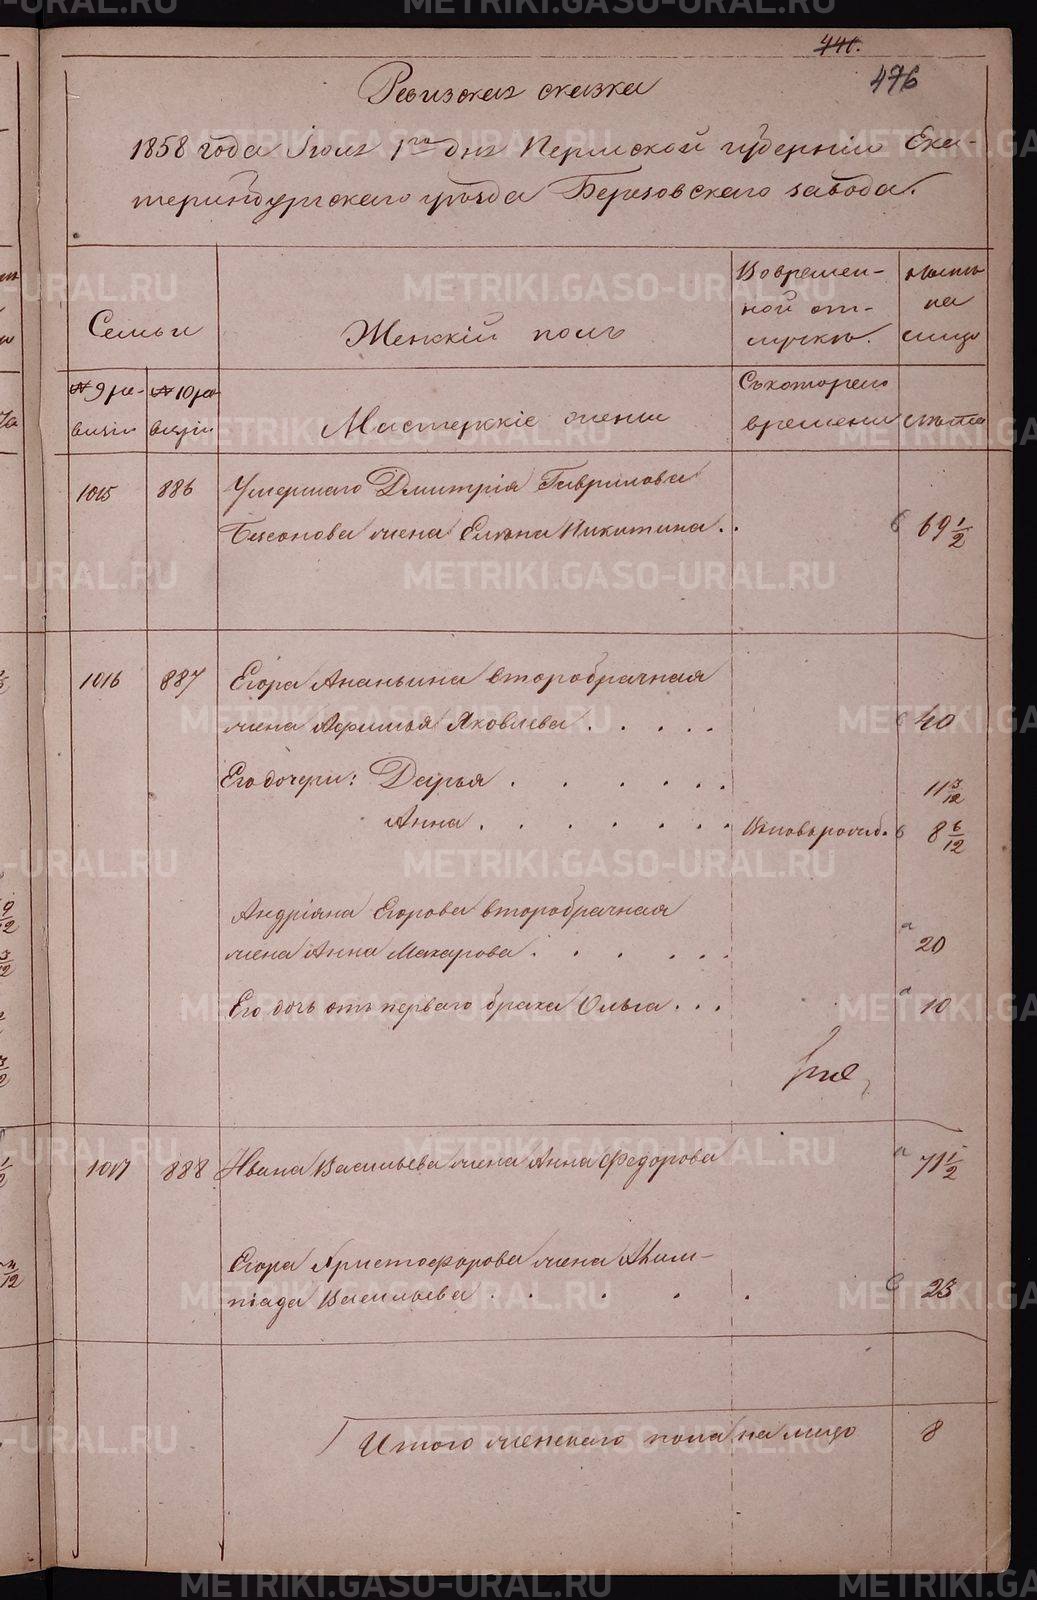 441.
476
Ревизская сказка
1858 года Іюля 1го дня Пермской губерніи Ека-
теринбургскаго уѣзда Березовскаго завода.
Семьи
Женскій полъ
Во времен-
ной от-
лучкѣ.
на
лицо
№ 9 ре-
визіи
№ 10 ре-
визіи
Мастерскіе жены
Съ котораго
времени
лѣта
1015 886 Умершаго Дмитрія Гаврилова
жена Елена Никитина . . 69 1/2
1016 887 Егора Ананьина второбрачная
жена Афимья Яковлева . . . . . 40
Его дочери: Дарья . . . . . . 11 3/12
Анна . . . . . . . 8 6/12
Андріяна Егорова второбрачная
жена Анна Макарова . . . . . . 20
Его дочь отъ перваго брака Ольга . . . 10
1017 888 Ивана Васильева жена Анна Федорова 71 1/2
Егора Христофорова жена Алим-
піада Васильева . . . . . 23
Итого женскаго пола на лицо 8
METRIKI.GASO-URAL.RU